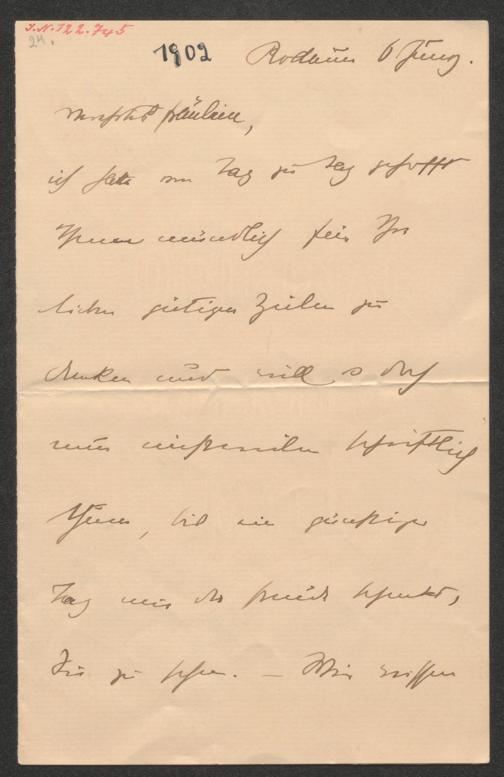 I.N. 122.745
24.
1902
Rodaun 6 Juny.
verehrtes Fräulein,
ich hatte von Tag zu Tag gehofft
Ihnen mündlich für Ihre
lieben gütigen Zeilen zu
danken und will es doch
nun einstweilen schriftlich
thuen, bis ein günstiger
Tag mir die Freude schenkt,
Sie zu sehen. — Wir müssen